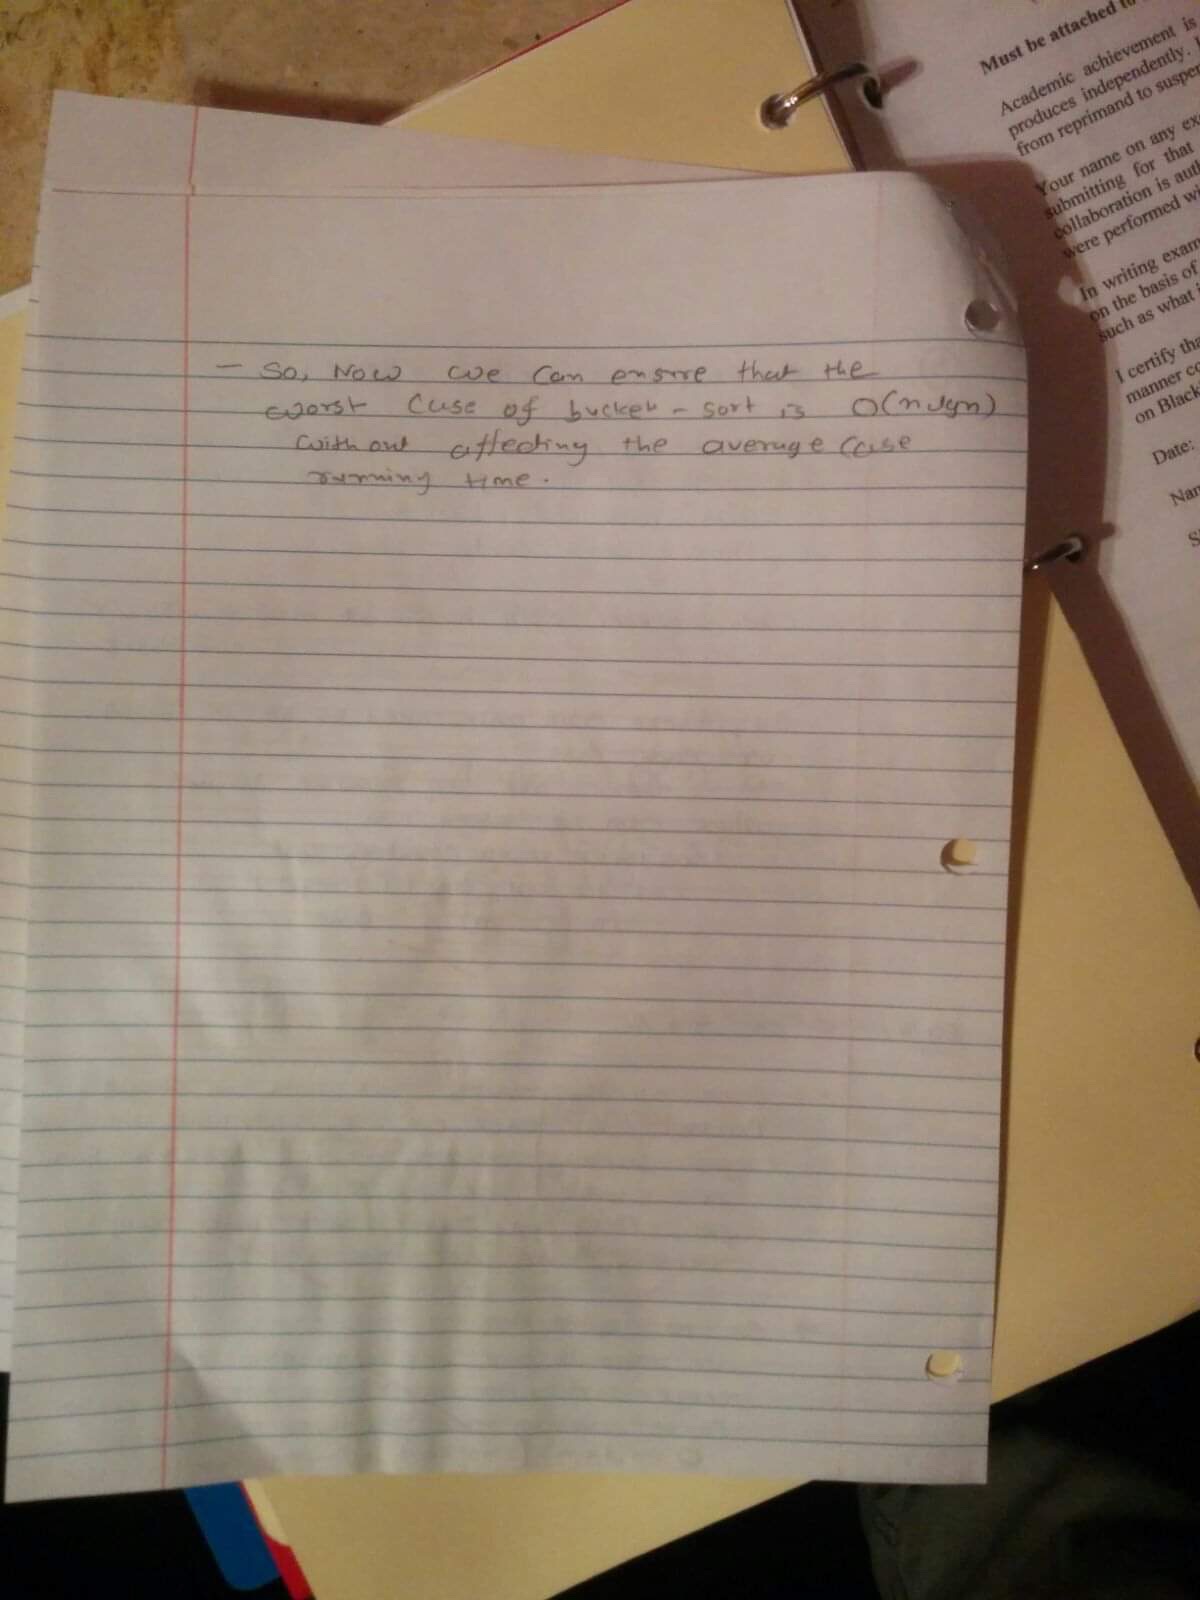 - So, Now we can ensure that the
worst case of bucket-sort is O(n lgn)
without affecting the average case
running time.
Must be attached to
Academic achievement is
produces independently.
from reprimand to suspen
Your name on any ex
submitting for that
collaboration is auth
were performed wi
In writing exam
on the basis of
such as what i
I certify tha
manner co
on Black
Date:
Nam